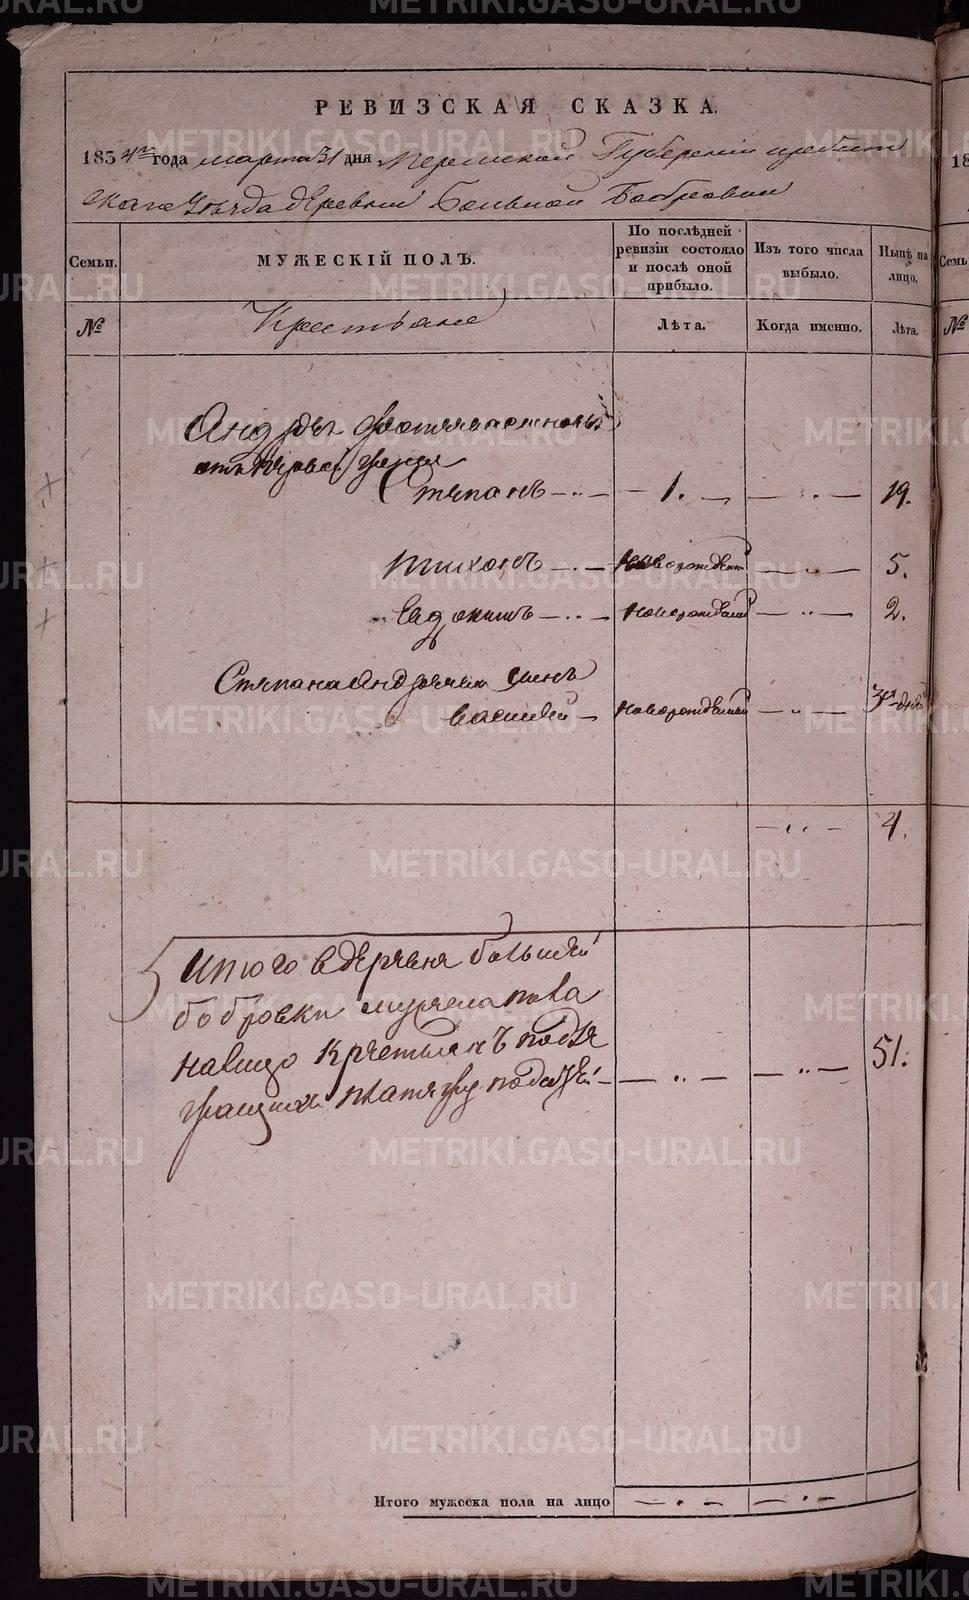 РЕВИЗСКАЯ СКАЗКА.
1834го года марта 31 дня Пермской Губернии Ирбит
скаго Уезда деревни Большой Бобровки
Семьи.
МУЖЕСКІЙ ПОЛЪ.
По послѣдней ревизіи состояло и послѣ оной прибыло.
Изъ того числа выбыло.
Нынѣ на лицо.
Семь
№
Крестьяне
Лѣта.
Когда именно.
Лѣта.
№
Андрея
отъ первой жены
Степанъ — 1. — 19.
Тихонъ — новорожденный — 5.
Евдокимъ — новорожденный — 2.
Степана Андреева сынъ
Василей — новорожденный — 3х дней
4.
Итого в деревне большей
бобровки мужеска пола
налицо крестьянъ подле
жащихъ платежу подотей — 51.
Итого мужеска пола на лицо
METRIKI.GASO-URAL.RU